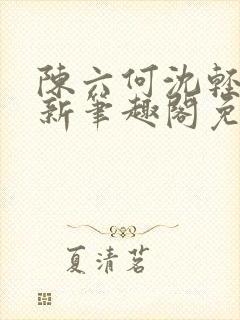 陳六何沈輕
新筆趣閣免
夏清茗